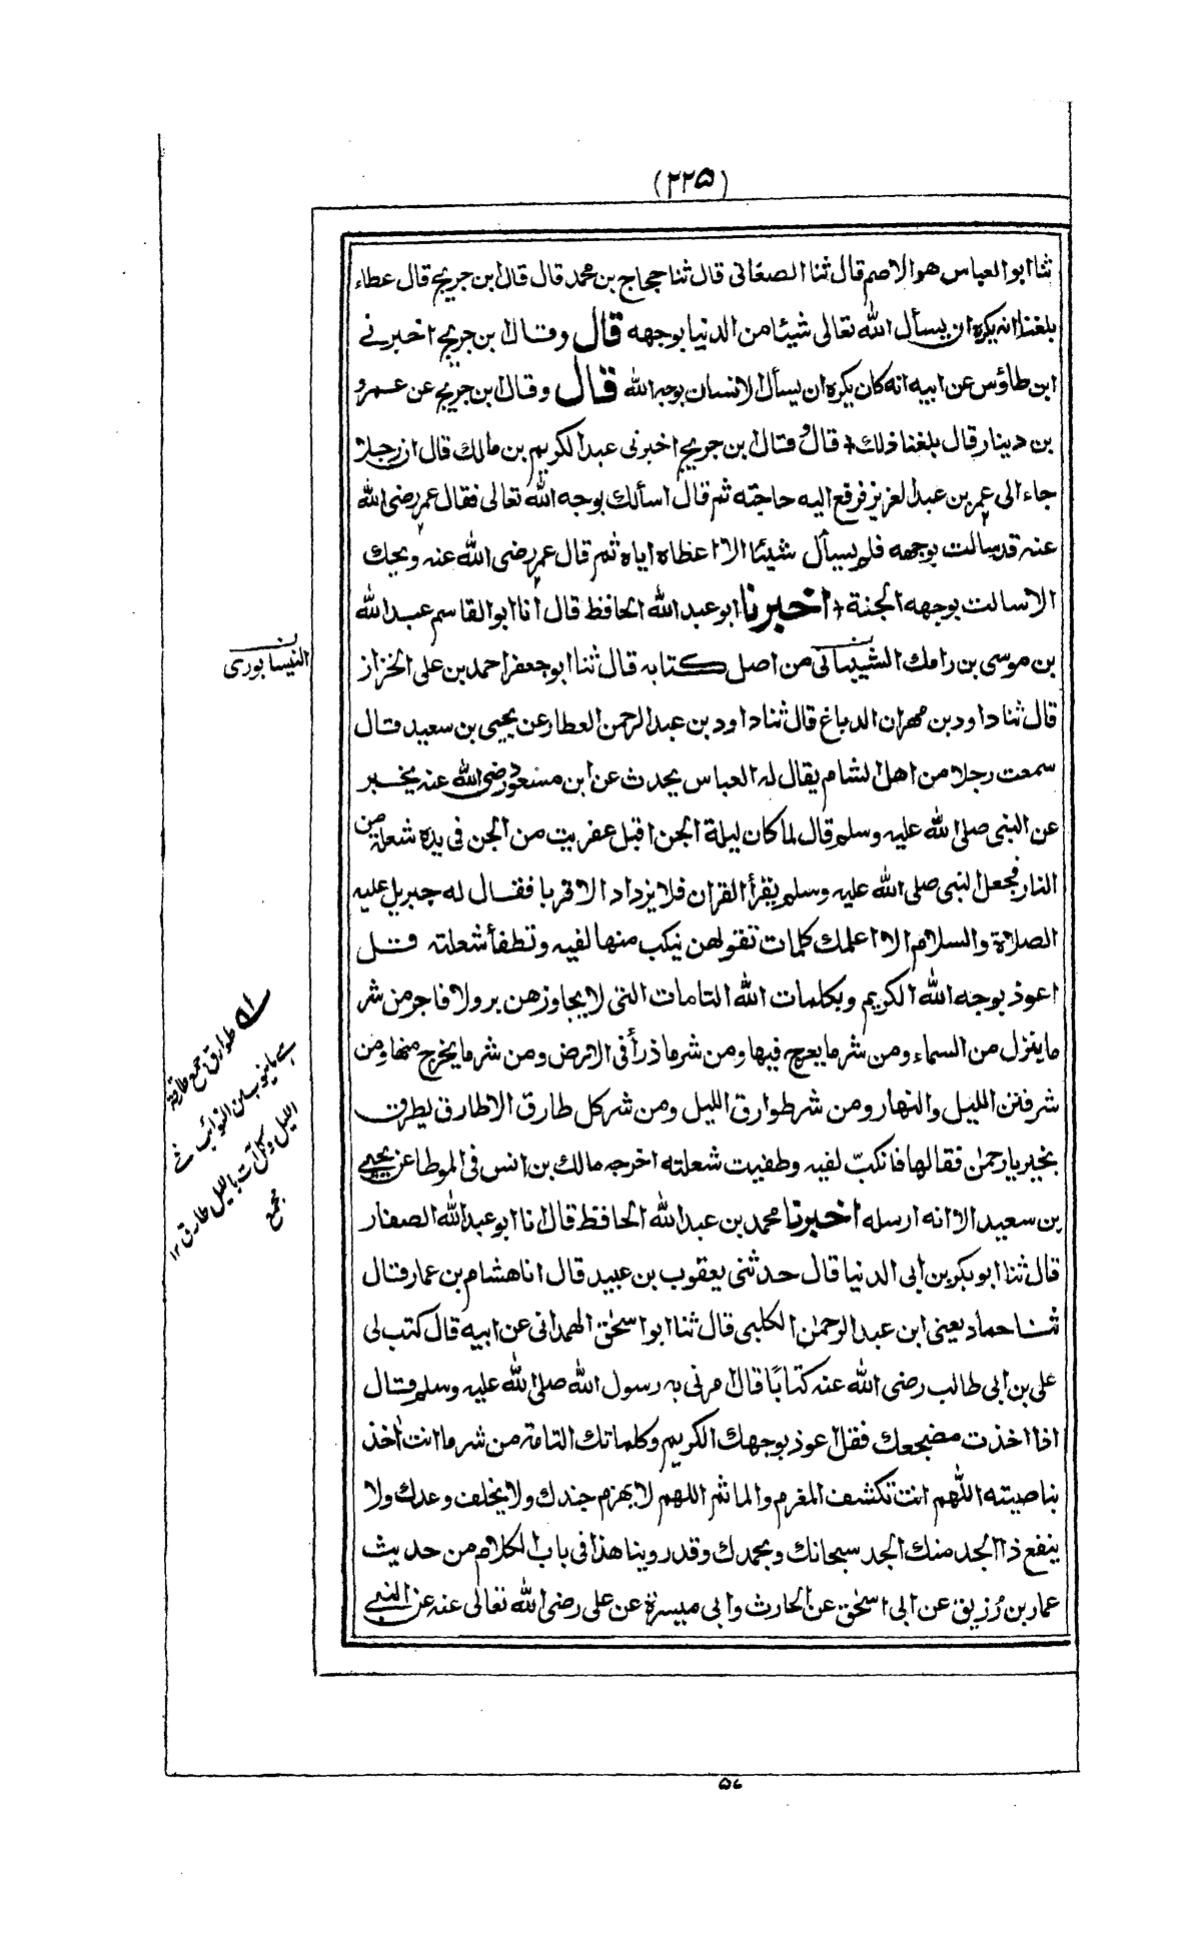 (٢٢٥)
ثنا ابو العباس هو الاصم قال ثنا الصغانى قال ثنا حجاج بن محمد قال قال ابن جريج قال عطاء
بلغنا انه يكره ان يسأل الله تعالى شيئا من الدنيا بوجهه قال وقال ابن جريج اخبرنى
ابن طاؤس عن ابيه انه كان يكره ان يسأل الانسان بوجه الله قال وقال ابن جريج عن عمرو
بن دينار قال بلغنا ذلك + قال وقال ابن جريج اخبرنى عبد الكريم بن مالك قال ان رجلا
جاء الى عمر بن عبد العزيز فرفع اليه حاجته ثم قال اسألك بوجه الله تعالى فقال عمر رضى الله
عنه قد سالت بوجهه فلم يسأل شيئا الا اعطاه اياه ثم قال عمر رضى الله عنه ويحك
الا سالت بوجهه الجنة + اخبرنا ابو عبد الله الحافظ قال انا ابو القاسم عبد الله
بن موسى بن رامك الشيبانى من اصل كتابه قال ثنا ابو جعفر احمد بن على الخزاز
النيسابورى
قال ثنا داود بن مهران الدباغ قال ثنا داود بن عبد الرحمن العطار عن يحيى بن سعيد قال
سمعت رجلا من اهل الشام يقال له العباس يحدث عن ابن مسعود رضى الله عنه يخبر
عن النبى صلى الله عليه وسلم قال لما كان ليلة الجن اقبل عفريت من الجن فى يده شعلة من
النار فجعل النبى صلى الله عليه وسلم يقرأ القران فلا يزداد الا قربا فقال له جبريل عليه
الصلاة والسلام الا اعلمك كلمات تقولهن ينكب منها لفيه وتطفأ شعلته قل
اعوذ بوجه الله الكريم وبكلمات الله التامات التى لا يجاوزهن بر ولا فاجر من شر
ما ينزل من السماء ومن شر ما يعرج فيها ومن شر ما ذرأ فى الارض ومن شر ما يخرج منها ومن
شر فتن الليل والنهار ومن شر طوارق الليل ومن شر كل طارق الا طارق يطرق
بخير يا رحمن فقالها فانكب لفيه وطفيت شعلته اخرجه مالك بن انس فى الموطا عن يحيى
بن سعيد الا انه ارسله اخبرنا محمد بن عبد الله الحافظ قال انا ابو عبد الله الصفار
قال ثنا ابو بكر بن ابى الدنيا قال حدثنى يعقوب بن عبيد قال انا هشام بن عمار قال
ثنا حماد يعنى ابن عبد الرحمن الكلبى قال ثنا ابو اسحق الهمدانى عن ابيه قال كتب لى
على بن ابى طالب رضى الله عنه كتابًا قال امرنى به رسول الله صلى الله عليه وسلم قال
اذا اخذت مضجعك فقل اعوذ بوجهك الكريم وكلماتك التامة من شر ما انت اخذ
بناصيته اللهم انت تكشف المغرم والماثم اللهم لا يهزم جندك ولا يخلف وعدك ولا
ينفع ذا الجد منك الجد سبحانك وبحمدك وقد روينا هذا فى باب الكلام من حديث
عمار بن رزيق عن ابى اسحق عن الحارث وابى ميسرة عن على رضى الله تعالى عنه عن النبى
له طوارق جمع طارقة
اى ما ينوب من النوائب فى
الليل وكل آت بالليل طارق ١٢
مجمع
٥٧